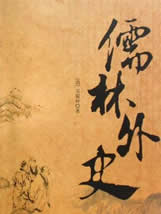 儒林外史
[清] 吴敬梓 著